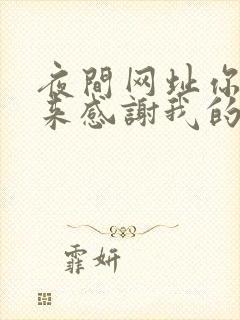 夜間网址你
来感謝我的
霏妍